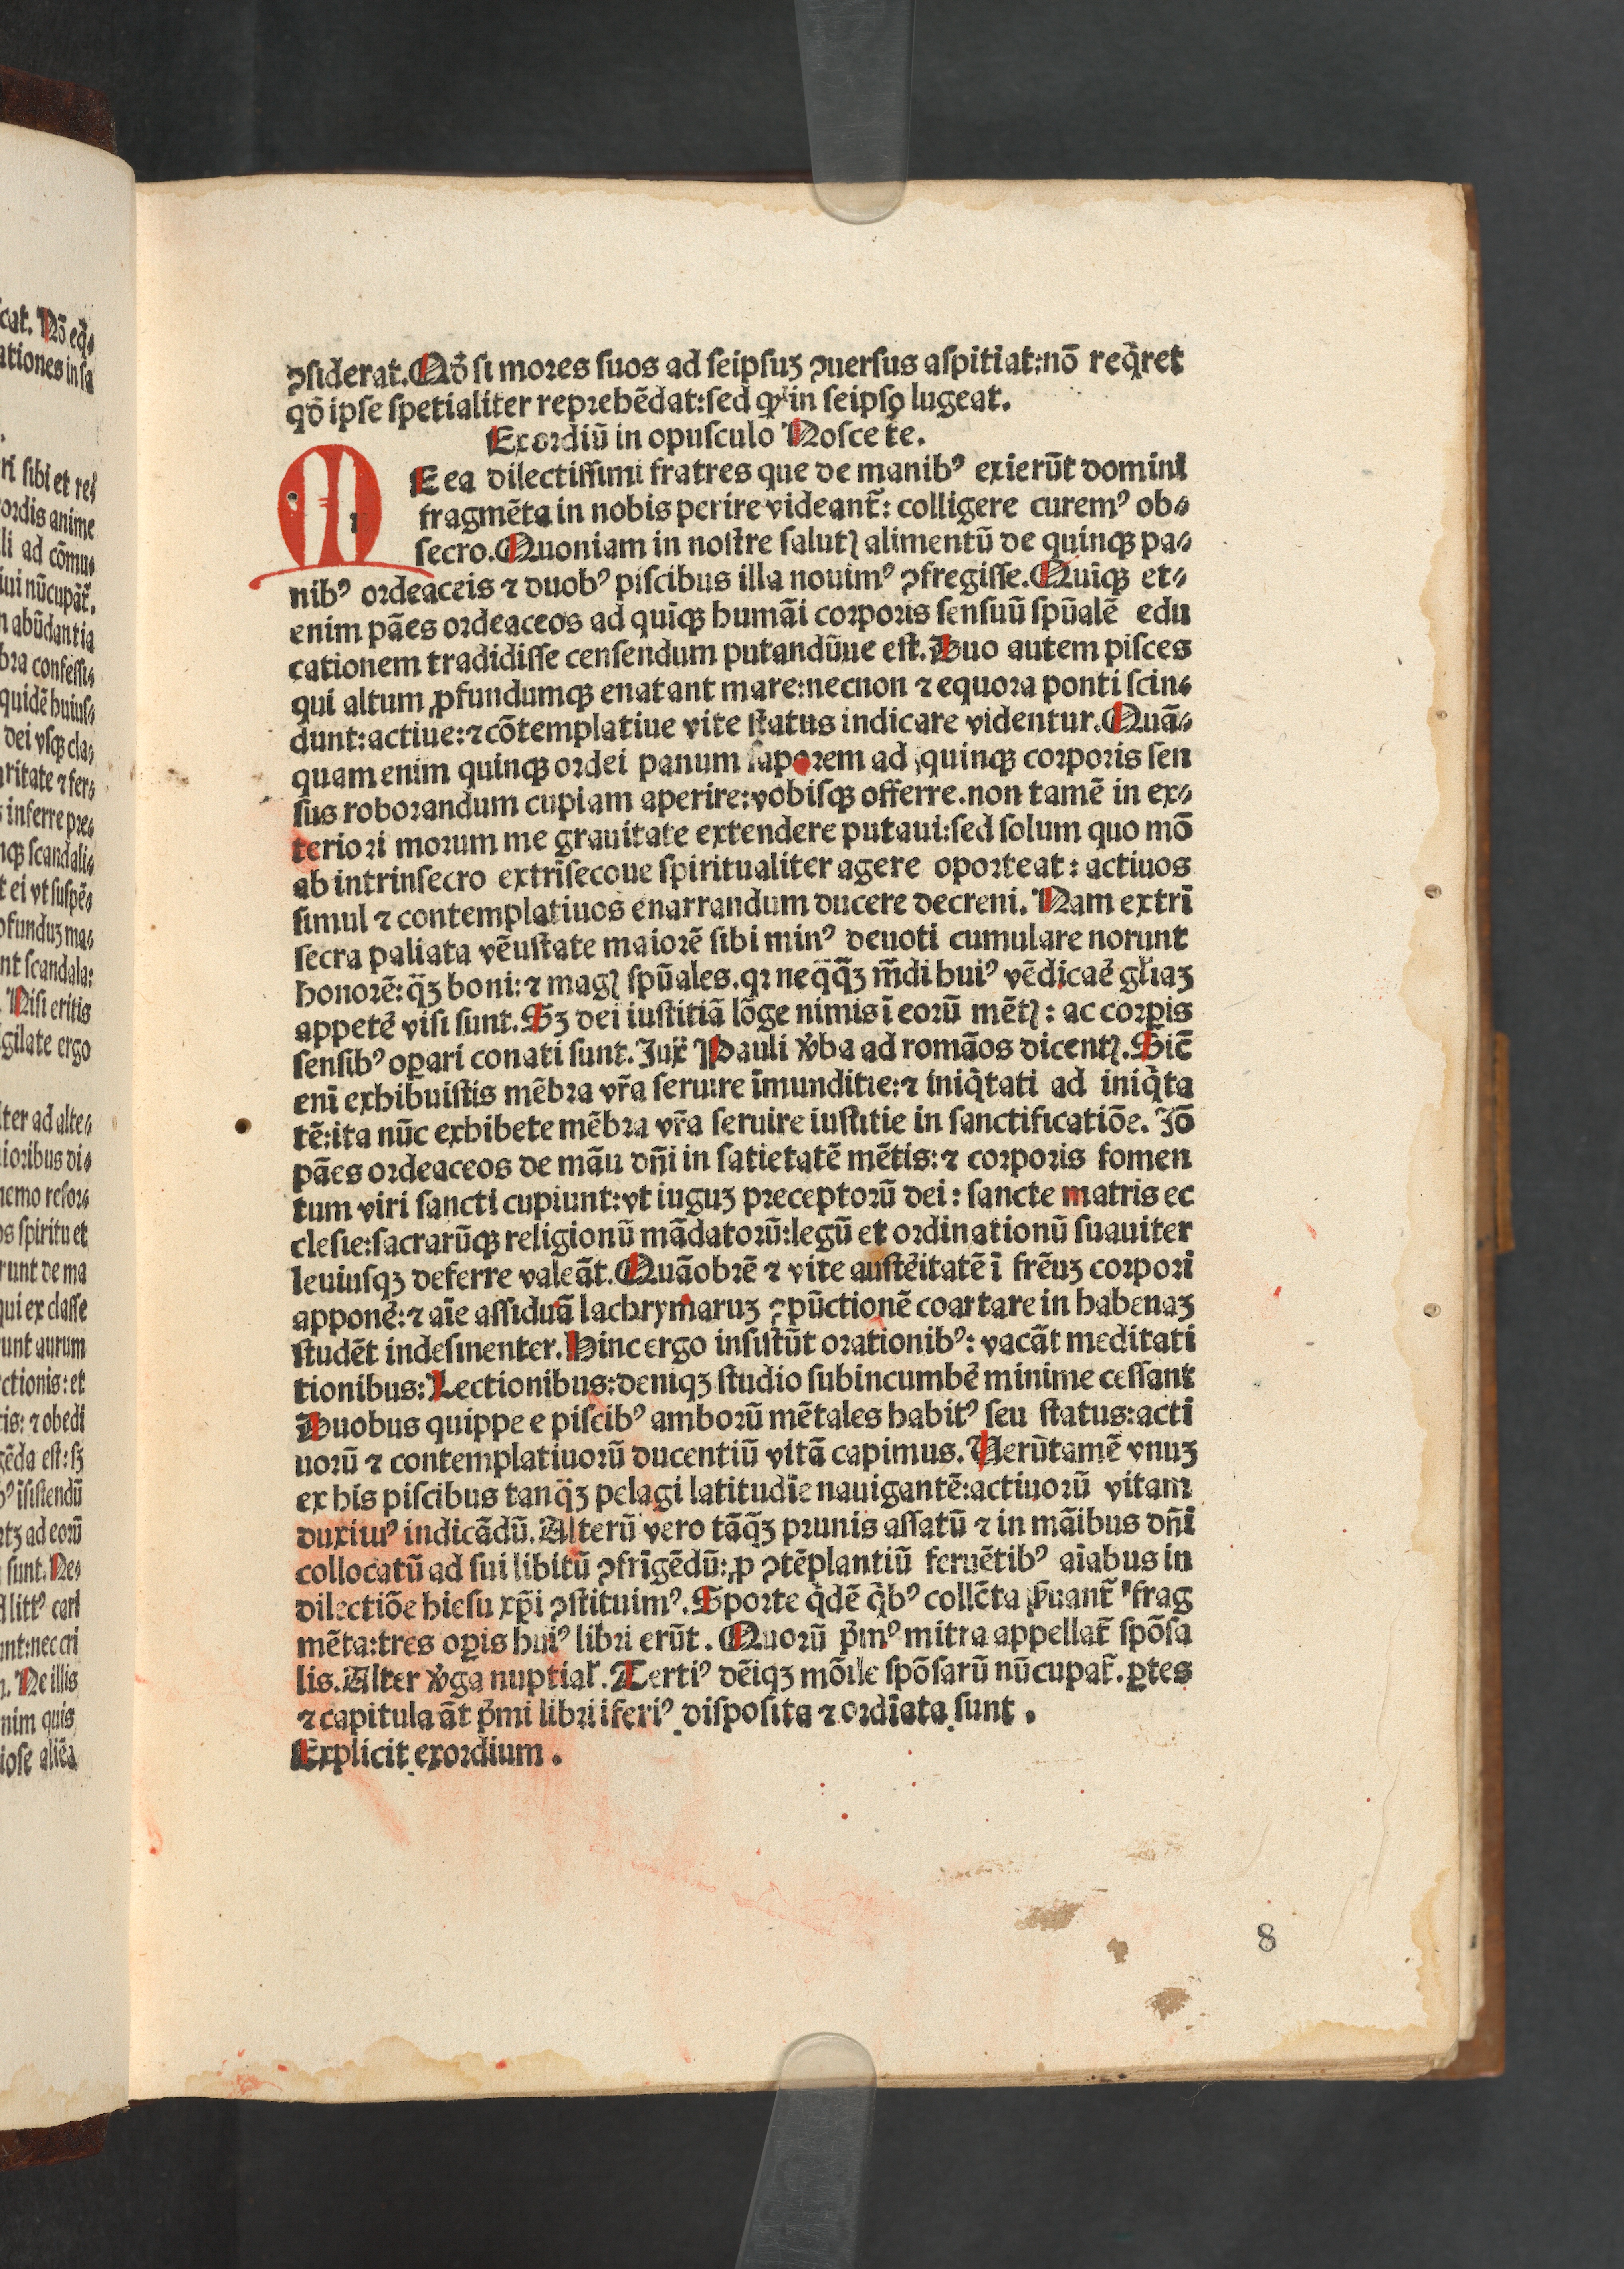 ꝯsiderat. Qō si mores suos ad seipsuꝫ ꝯuersus aspitiat: nō reqͥret
qō ipse spetialiter reprehēdat: sed qͩ in seipso lugeat.
Exordiū in opusculo Nosce te.
NE ea dilectissimi fratres que de manibꝰ exierūt domini
fragmēta in nobis perire videant̄: colligere curemꝰ ob⸗
secro. Quoniam in nostre salutꝭ alimentū de quinqꝫ pa⸗
nibꝰ ordeaceis ⁊ duobꝰ piscibus illa nouimꝰ ꝯfregisse. Quīqꝫ et⸗
enim pāes ordeaceos ad quīqꝫ humāi corporis sensuū spūalē edu
cationem tradidisse censendum putandūue est. Duo autem pisces
qui altum ꝓfundumqꝫ enatant mare: necnon ⁊ equora ponti scin⸗
dunt: actiue: ⁊ cōtemplatiue vite status indicare videntur. Quā⸗
quam enim quinqꝫ ordei panum saporem ad quinqꝫ corporis sen
sus roborandum cupiam aperire: vobisqꝫ offerre. non tamē in ex⸗
teriori morum me grauitate extendere putaui: sed solum quo mō
ab intrinsecro extrīsecoue spiritualiter agere oporteat: actiuos
simul ⁊ contemplatiuos enarrandum ducere decreui. Nam extrī
secra paliata vēustate maiorē sibi minꝰ deuoti cumulare norunt
honorē: qͣꝫ boni: ⁊ magꝭ spūales. qꝛ neqͣqͣꝫ mūdi huiꝰ vēdicaē gl̄iaꝫ
appetē visi sunt. Sꝫ dei iustitiā lōge nimis ī eorū mētꝭ: ac corꝑis
sensibꝰ oꝑari conati sunt. Jux̄ Pauli v̄ba ad romāos dicentꝭ. Sic̄
enī exhibuistis mēbra vr̄a seruire īmunditie: ⁊ iniqͥtati ad iniqͥta
tē: ita nūc exhibete mēbra vr̄a seruire iustitie in sanctificatiōe. Jō
pāes ordeaceos de māu dn̄i in satietatē mētis: ⁊ corporis fomen
tum viri sancti cupiunt: vt iuguꝫ preceptorū dei: sancte matris ec
clesie: sacrarūqꝫ religionū mādatorū: legū et ordinationū suauiter
leuiusqꝫ deferre valeāt. Quāobrē ⁊ vite austēitatē ī frēuꝫ corpori
apponē: ⁊ aīe assiduā lachrymaruꝫ ꝯpūctionē coartare in habenaꝫ
studēt indesinenter. Hinc ergo insistūt orationibꝰ: vacāt meditati
tionibus: Lectionibus: deniqꝫ studio subincumbē minime cessant
Duobus quippe e piscibꝰ amborū mētales habitꝰ seu status: acti
uorū ⁊ contemplatiuorū ducentiū vitā capimus. Verūtamē vnuꝫ
ex his piscibus tanqͣꝫ pelagi latitudīe nauigantē: actiuorū vitam
duximꝰ indicādū. Alterū vero tāqͣꝫ prunis assatū ⁊ in māibus dn̄i
collocatū ad sui libitū ꝯfrīgēdū: ꝓ ꝯtēplantiū feruētibꝰ aīabus in
dilectiōe hiesu xp̄i ꝯstituimꝰ. Sporte qͥdē qͥbꝰ collc̄ta ẜuant̄ frag
mēta: tres oꝑis huiꝰ libri erūt. Quorū pͥmꝰ mitra appellat̄ spōsa
lis. Alter v̄ga nuptial̄. Tertiꝰ dēiqꝫ mōile spōsarū nūcupat̄. ꝑtes
⁊ capitula āt pͥmi libri īferiꝰ disposita ⁊ ordīata sunt.
Explicit exordium.
8